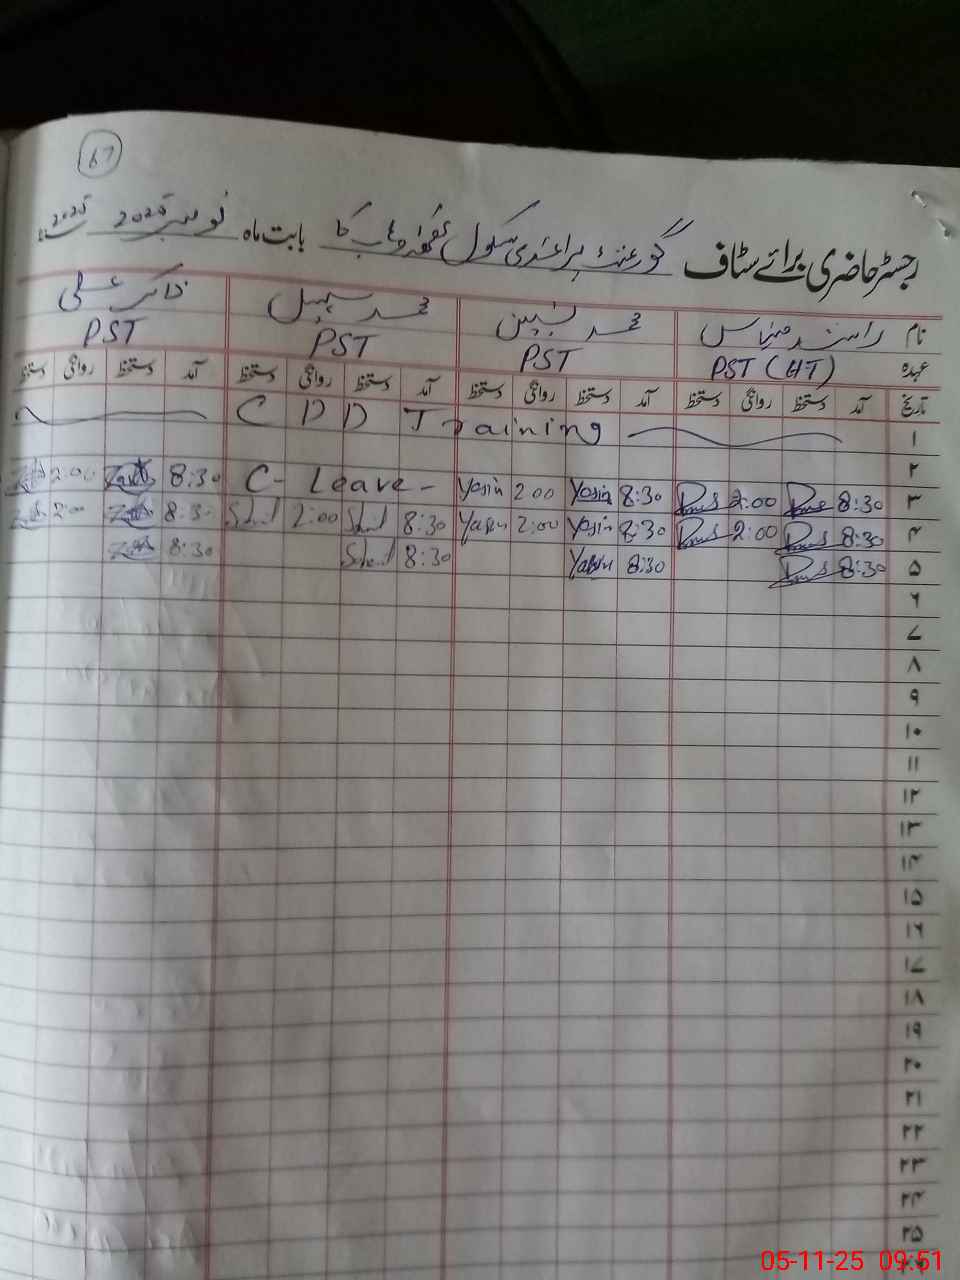 67
رجسٹر حاضری برائے سٹاف گورنمنٹ پرائمری سکول بابت ماہ نومبر 2025 2025
نام محمد یسین محمد سہیل ذاکر علی
عہدہ PST (HT) PST PST PST
تاریخ آمد دستخط روانگی دستخط آمد دستخط روانگی دستخط آمد دستخط روانگی دستخط آمد دستخط روانگی دستخط
۱ CDD Training
۲
۳ 8:30 2:00 8:30 Yasin 2:00 Yasin C- Leave - 8:30 2:00
۴ 8:30 2:00 8:30 Yasin 2:00 Yasin 8:30 2:00 8:30 2:00
۵ 8:30 8:30 Yasin 8:30 8:30
۶
۷
۸
۹
۱۰
۱۱
۱۲
۱۳
۱۴
۱۵
۱۶
۱۷
۱۸
۱۹
۲۰
۲۱
۲۲
۲۳
۲۴
۲۵
05-11-25 09:51